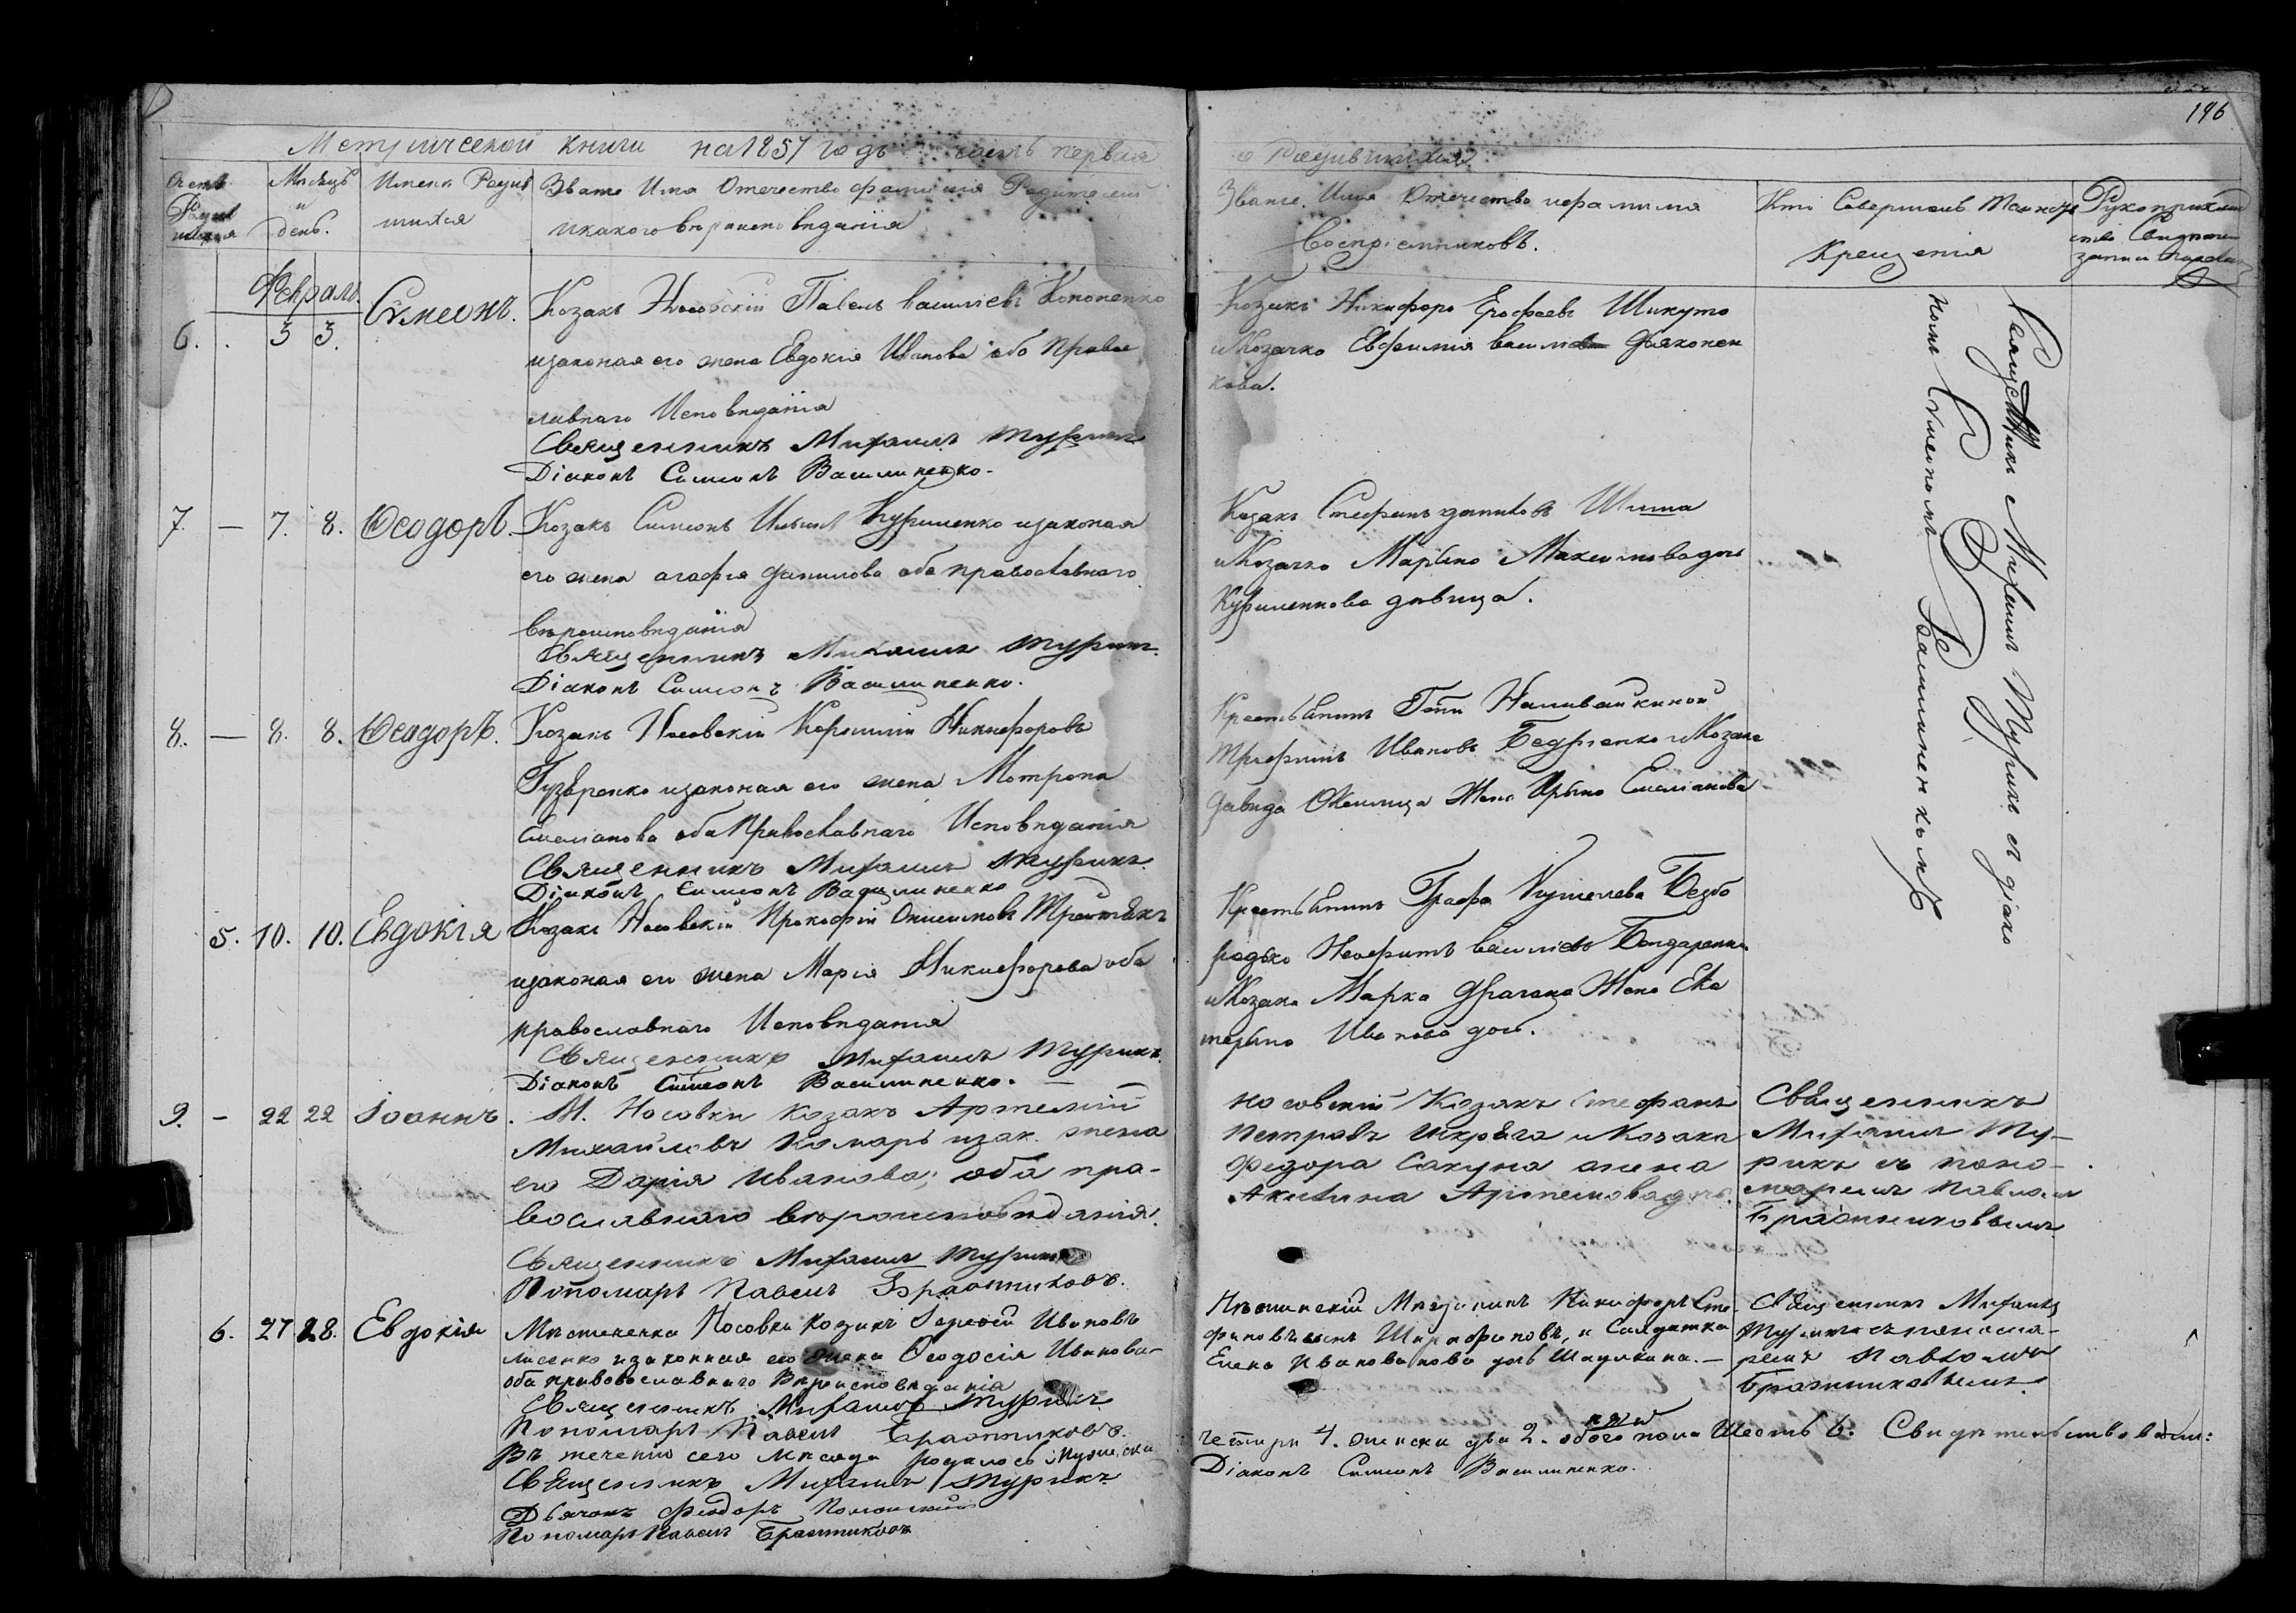 196
Метрической книги на 1857 годъ часть первая
о Родившихся
Месяцъ
и
день.
Имена Родив
шихся
Званіе Имя Отечество фамилія Родителей
икакого вероисповеданія
Званіе Имя Отечество ифамилія
Воспріемниковъ.
Кто Совершалъ Таинство
Крещенія
Рукоприклад
ство Свидетел
записи
Февраль
6. 3 3. Сѵмеонъ. Козакъ Носовскій Павелъ василіевъ Кононенко
изаконая его жена Евдокия Иванова оба Право
славнаго Исповеданія
Священникъ Михаилъ Турикъ
Діаконъ Симеонъ Василиненко.
Козакъ Никифоръ Ерофеевъ Шикута
иКозачка Евфимія васил Дьяконен
кова.
7. — 7. 8. Ѳеодоръ. Козакъ Симеонъ Куриленко изаконая
его жена агафия данилова оба православнаго
вероисповеданія
Священникъ Михаилъ Турикъ.
Діаконъ Симеонъ Василиненко.
Козакъ Стефанъ даниловъ
иКозачка Марина Максимова дочь
Куриленкова девица.
8. — 8. 8. Ѳеодоръ. Козакъ Носовскій Корнилій Никифоровъ
изаконая его жена Мотрона
Емеліанова оба Православнаго Исповеданія
Священникъ Михаилъ Турикъ
Діаконъ Симеонъ Василиненко
Крестьянинъ Наливайкиной
Трифонъ Ивановъ иКозака
давида жена Ирина Емеліанова
5. 10. 10. Евдокія Козакъ Носовскій Прокофій
изаконая его жена Марія Никифорова оба
православнаго Исповеданія
Священникъ Михаилъ Турикъ.
Діаконъ Симеонъ Василиненко.
Крестьянинъ Графа Кушелева Безбо
родько Неофитъ василіевъ Бондаренко
иКозака Марка Драгана Жена Ека
терина Иванова доч.
Священникъ Михаилъ Турикъ съ діако
номъ Сѵмеономъ Василиненкомъ
9. — 22 22 Іоаннъ. М. Носовки козакъ Артемій
Михайловъ Комаръ изак. жена
его Дарія Иванова; оба пра-
вославнаго вероисповеданія.
Священникъ Михаилъ Турикъ
Пономарь Павелъ Бражниковъ.
носовскій Козакъ Стефанъ
Петровъ иКозака
Федора Сакуна жена
Акилина Артемова дочь.
Священникъ
Михаилъ Ту-
рикъ съ поно-
маремъ Павломъ
Бражниковымъ
6. 27 28. Евдокія Местечка Носовки козакъ Сергей Ивановъ
Лисенко изаконная его жена Ѳеодосія Иванова
оба православнаго Вероисповеданія
Священникъ Михаилъ Турикъ
Пономарь Павелъ Бражниковъ.
Нежинскій Мещанинъ Никифоръ Сте-
фановъ сынъ и Солдатка
Елена Иванова дочь
Священникъ Михаилъ
Турикъ съ понома-
ремъ Павломъ
Бражниковымъ.
Въ теченіи сего месяца родилось: мужеска
четыри 4. женска два 2. обоего пола Шесть 6. Свидетельствовали:
Священникъ Михаилъ Турикъ
Діаконъ Симеонъ Василиненко.
Дьячокъ Феодоръ
Пономарь Павелъ Бражниковъ